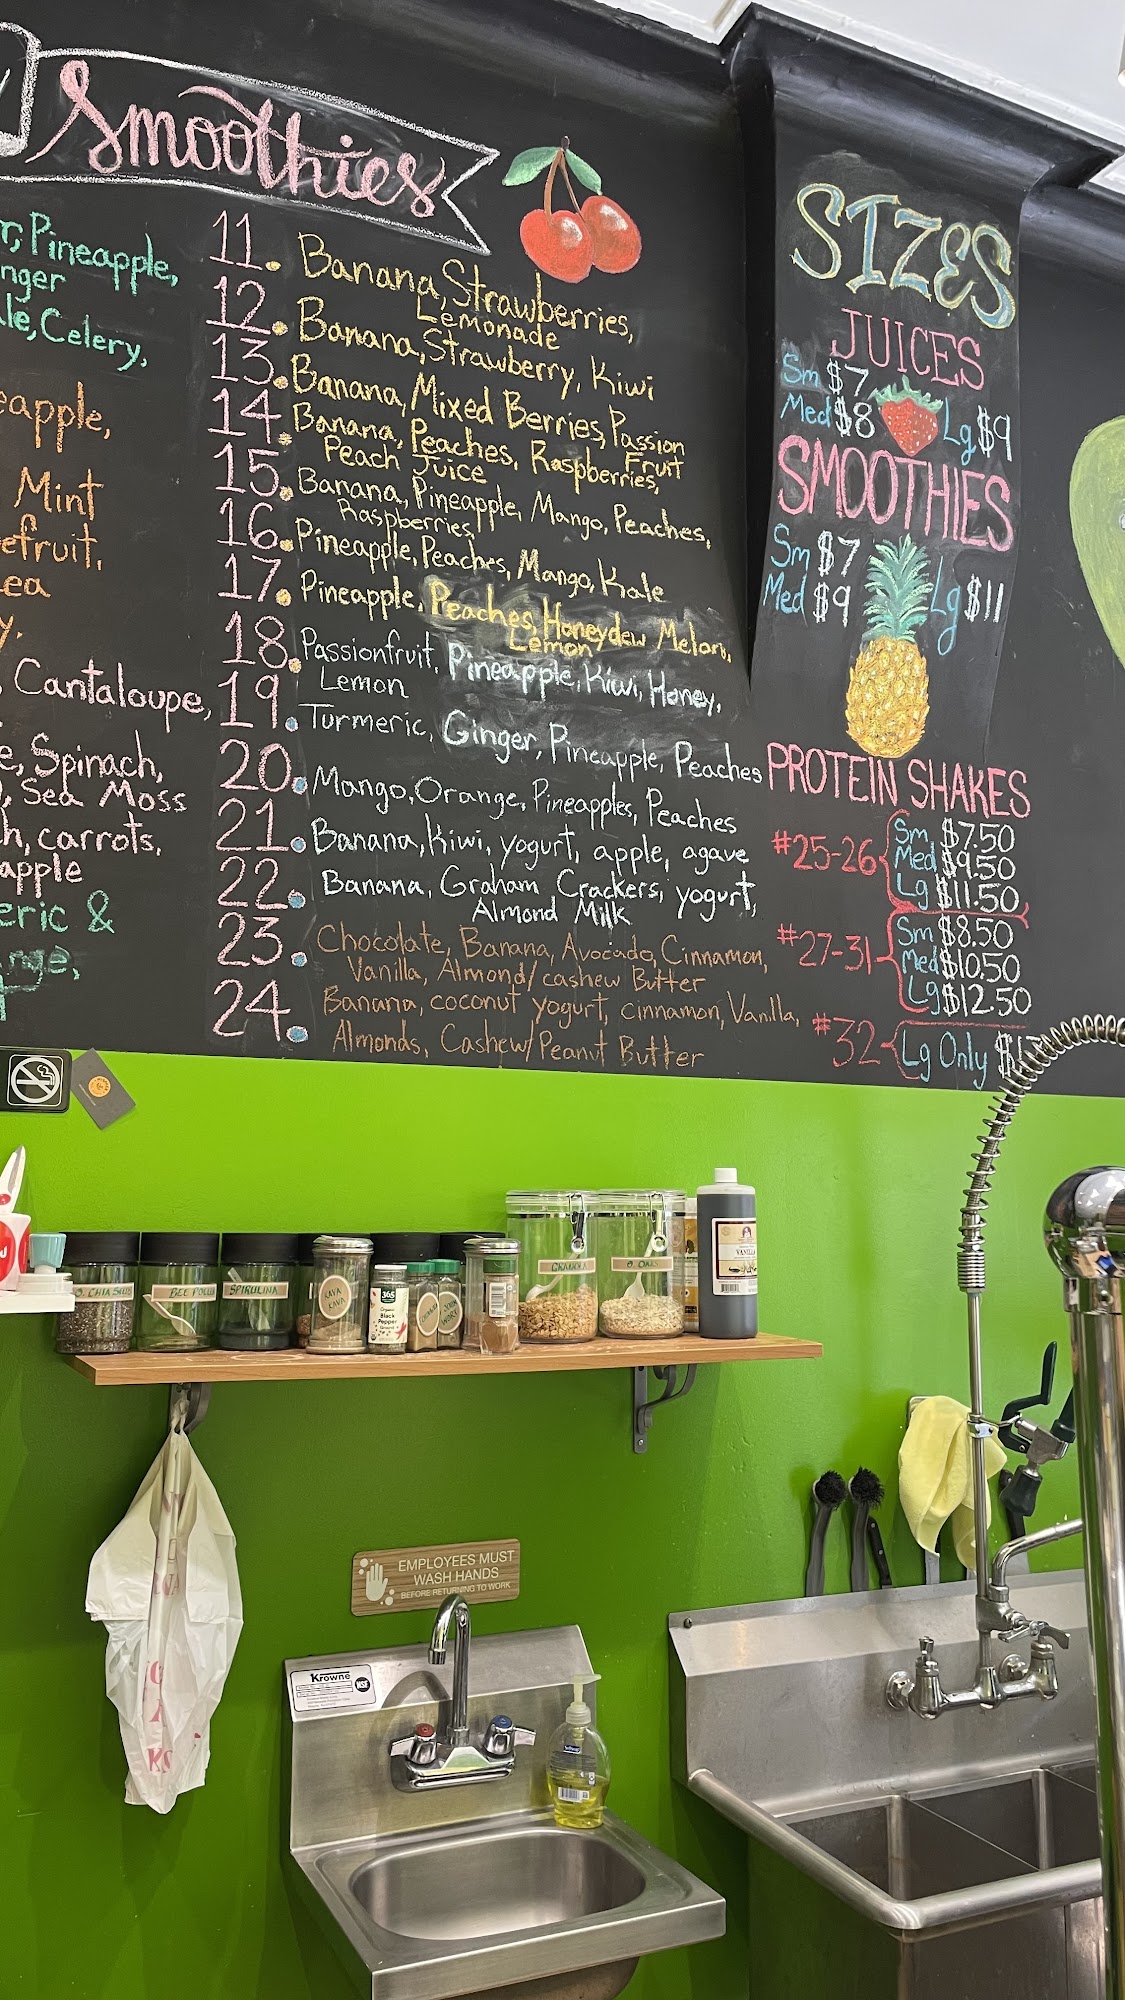 Smoothies
Pineapple,
Celery,
Mint
Cantaloupe,
Spinach,
Sea Moss
carrots,
apple
&
11. Banana, Strawberries,
Lemonade
12. Banana, Strawberry, Kiwi
13. Banana, Mixed Berries, Passion
Fruit
14. Banana, Peaches, Raspberries,
Peach Juice
15. Banana, Pineapple, Mango, Peaches,
Raspberries,
16. Pineapple, Peaches, Mango, Kale
17. Pineapple, Peaches, Honeydew Melon,
Lemon
18. Passionfruit, Pineapple, Kiwi, Honey,
Lemon
19. Turmeric, Ginger, Pineapple, Peaches
20. Mango, Orange, Pineapples, Peaches
21. Banana, Kiwi, yogurt, apple, agave
22. Banana, Graham Crackers, yogurt,
Almond Milk
23. Chocolate, Banana, Avocado, Cinnamon,
Vanilla, Almond/cashew Butter
24. Banana, coconut yogurt, cinnamon, Vanilla,
Almonds, Cashew/Peanut Butter
SIZES
JUICES
Sm $7
Med $8 Lg $9
SMOOTHIES
Sm $7
Med $9 Lg $11
PROTEIN SHAKES
#25-26
Sm $7.50
Med $9.50
Lg $11.50
#27-31
Sm $8.50
Med $10.50
Lg $12.50
#32 Lg Only
O. CHIA SEEDS
BEE POLLEN
SPIRULINA
KAVA
KAVA
365
Organic
Black
Pepper
GRANOLA
O. OATS
VANILLA
EMPLOYEES MUST
WASH HANDS
BEFORE RETURNING TO WORK
Krowne
NSF